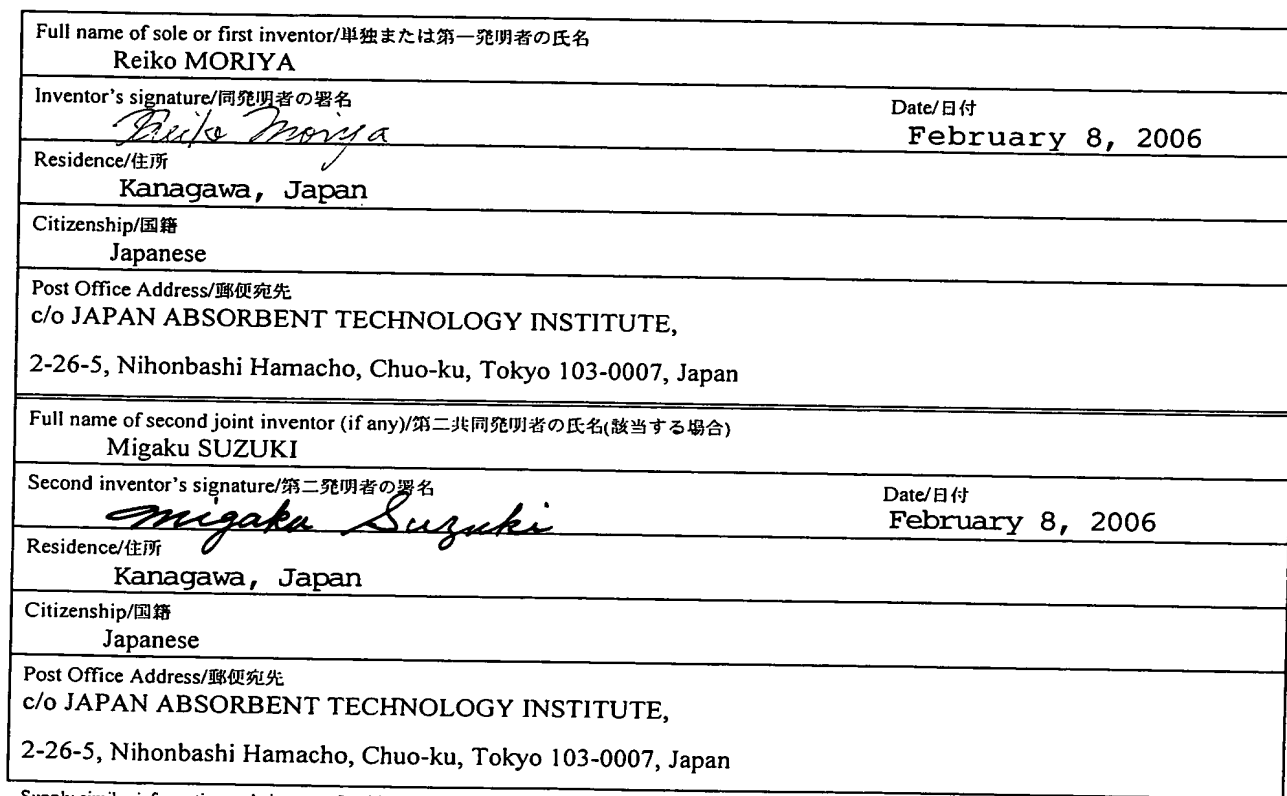 Full name of sole or first inventor/単独または第一発明者の氏名
Reiko MORIYA
Inventor's signature/同発明者の署名
Reiko Moriya
Date/日付
February 8, 2006
Residence/住所
Kanagawa, Japan
Citizenship/国籍
Japanese
Post Office Address/郵便宛先
c/o JAPAN ABSORBENT TECHNOLOGY INSTITUTE,
2-26-5, Nihonbashi Hamacho, Chuo-ku, Tokyo 103-0007, Japan
Full name of second joint inventor (if any)/第二共同発明者の氏名(該当する場合)
Migaku SUZUKI
Second inventor's signature/第二発明者の署名
Migaku Suzuki
Date/日付
February 8, 2006
Residence/住所
Kanagawa, Japan
Citizenship/国籍
Japanese
Post Office Address/郵便宛先
c/o JAPAN ABSORBENT TECHNOLOGY INSTITUTE,
2-26-5, Nihonbashi Hamacho, Chuo-ku, Tokyo 103-0007, Japan